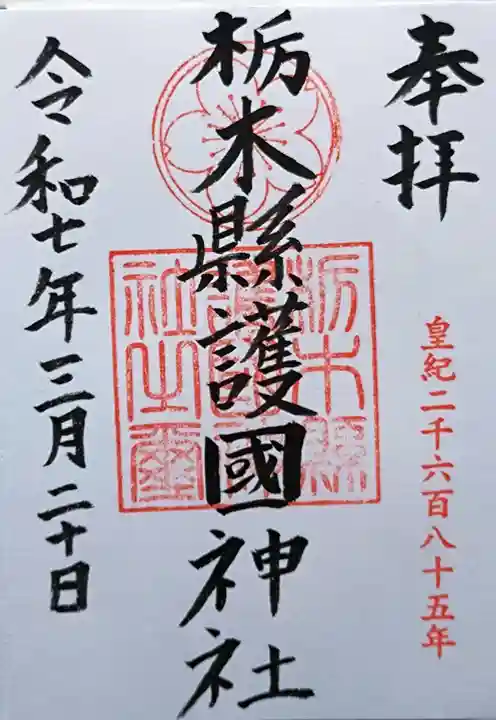 奉拝
皇紀二千六百八十五年
栃木縣護國神社
栃木縣護國神社之璽
令和七年三月二十日